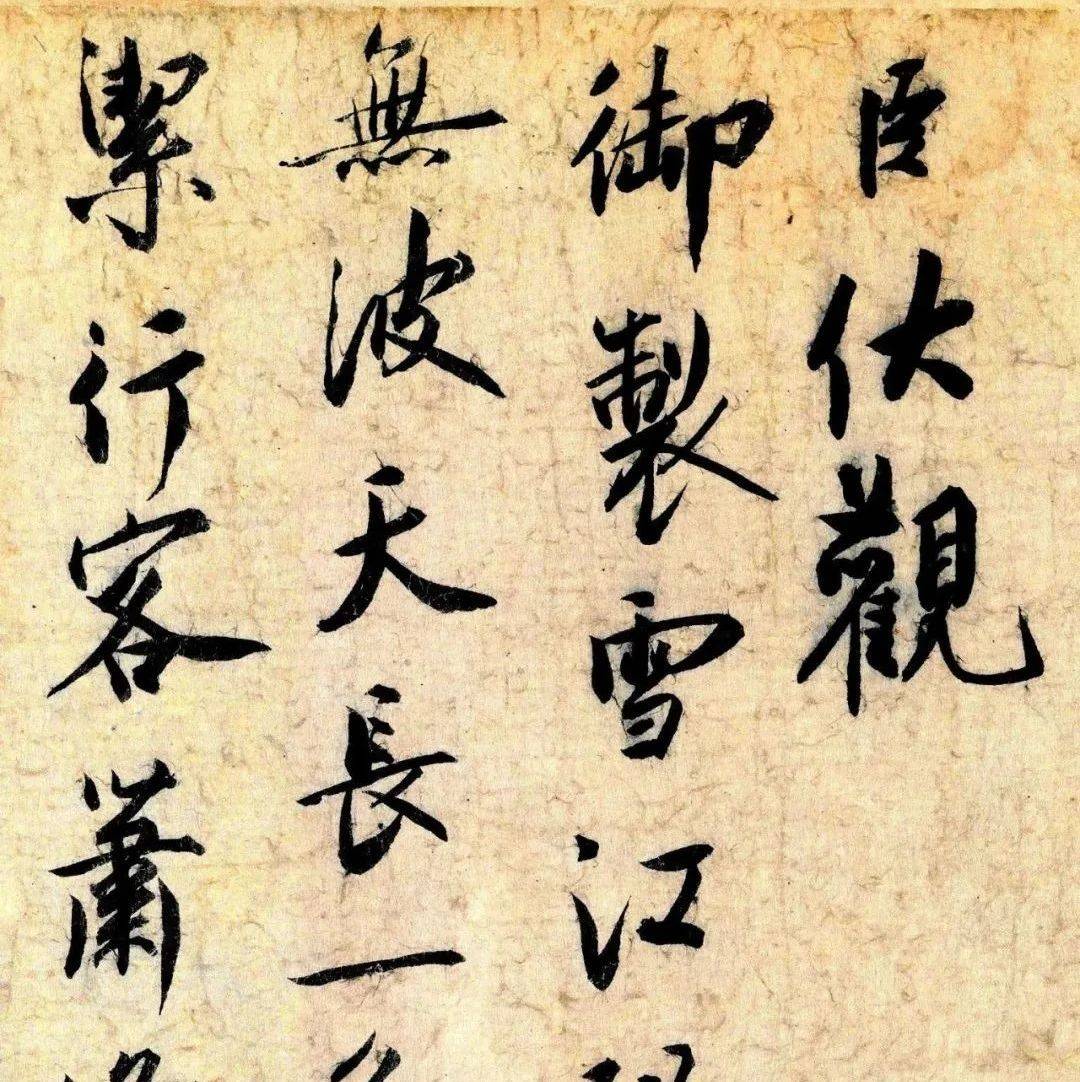 臣伏觀
御製雪江
無波天長一
潔行客蕭